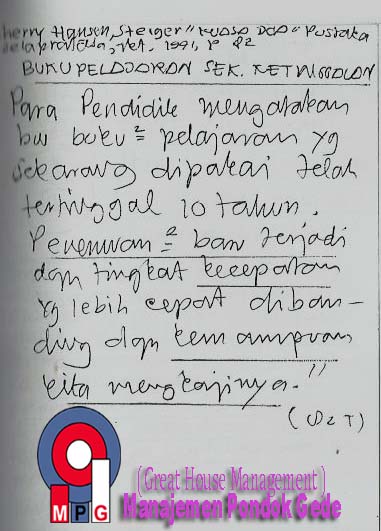 herry Hansen, Steiger "KUASA DOA" Pustaka
delapratasa, ket. 1991, P 82
BUKU PELAJARAN SEK. KETINGGALAN
Para Pendidik mengatakan
bw buku² pelajaran yg
sekarang dipakai telah
tertinggal 10 tahun.
Penemuan² baru terjadi
dgn tingkat kecepatan
yg lebih cepat diban–
ding dgn kemampuan
kita mengkajinya."
MPG
(Great House Management)
Manajemen Pondok Gede